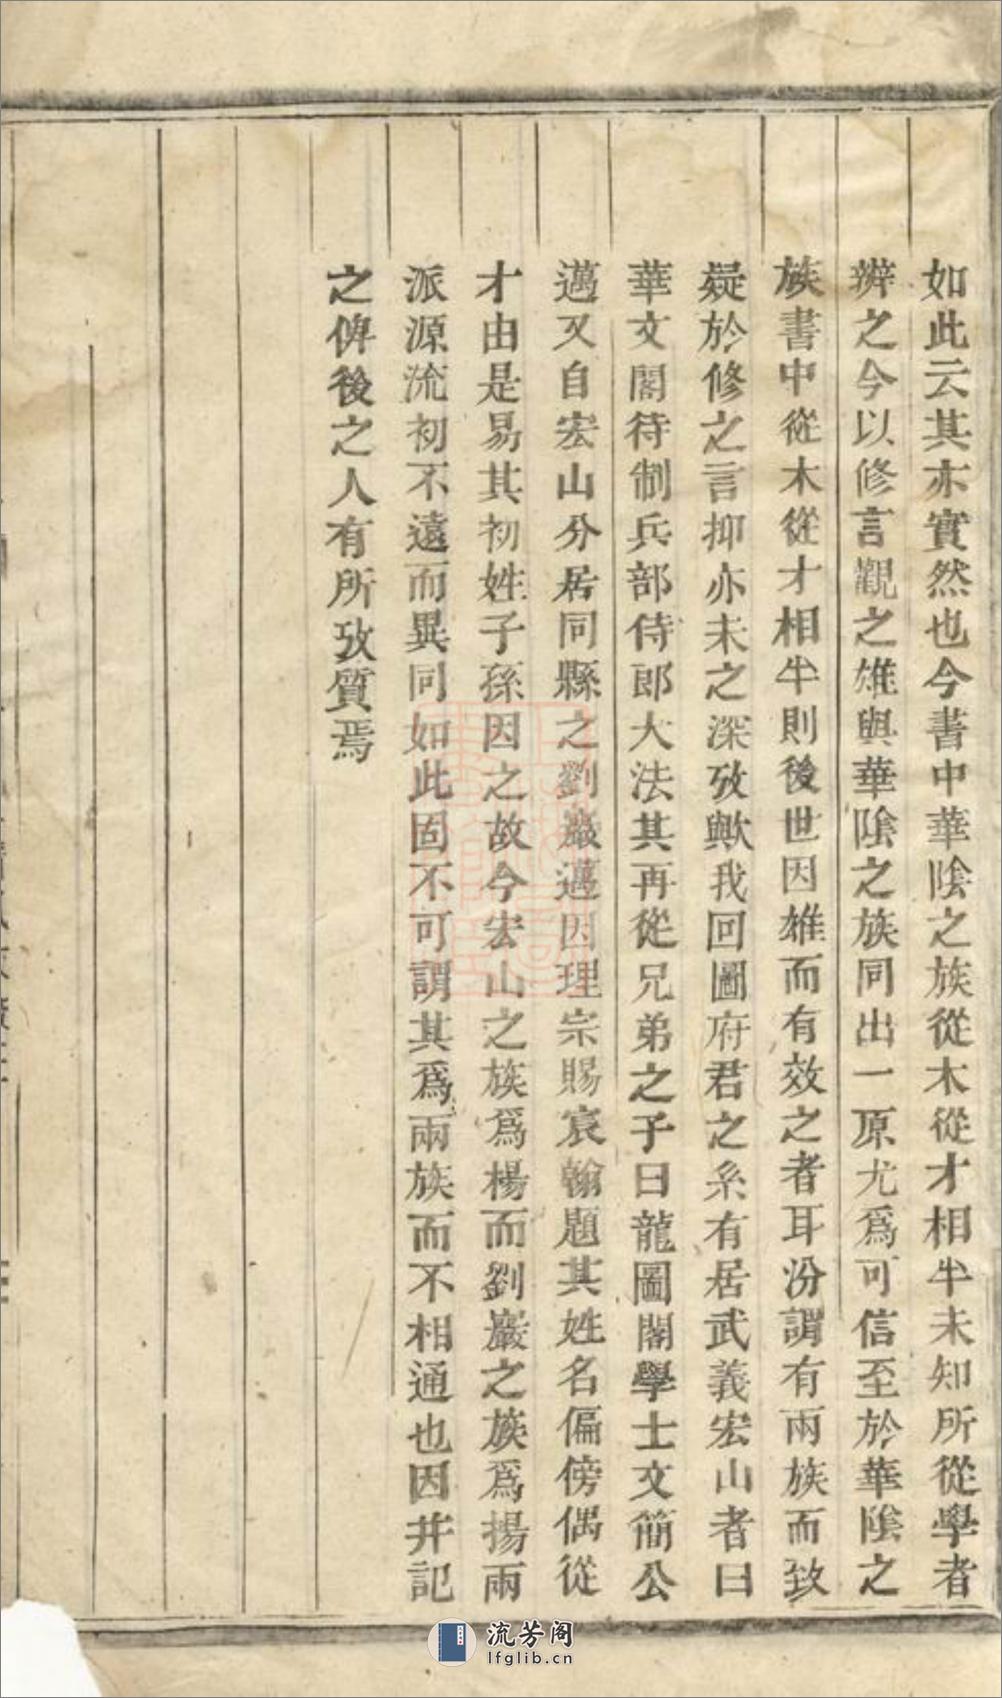 如此云其亦實然也今書中華陰之族從木從才相半未知所從學者
辨之今以修言觀之雄與華陰之族同出一原尤爲可信至於華陰之
族書中從木從才相半則後世因雄而有效之者耳汾謂有兩族而致
疑於修之言抑亦未之深攷歟我回圖府君之系有居武義宏山者曰
華文閣待制兵部侍郎大法其再從兄弟之子曰龍圖閣學士文簡公
邁又自宏山分居同縣之劉巖邁因理宗賜宸翰題其姓名偏傍偶從
才由是易其初姓子孫因之故今宏山之族爲楊而劉巖之族爲揚兩
派源流初不遠而異同如此固不可謂其爲兩族而不相通也因并記
之俾後之人有所攷質焉
流芳阁
lfglib.cn